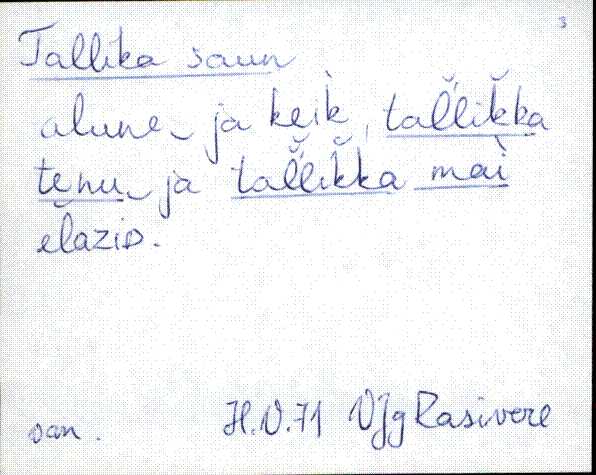 3
Tallika saun
alune ja keik, tallikka
tenu ja tallikka mai
elazid.
van. H.V. 71 VJg Rasivere